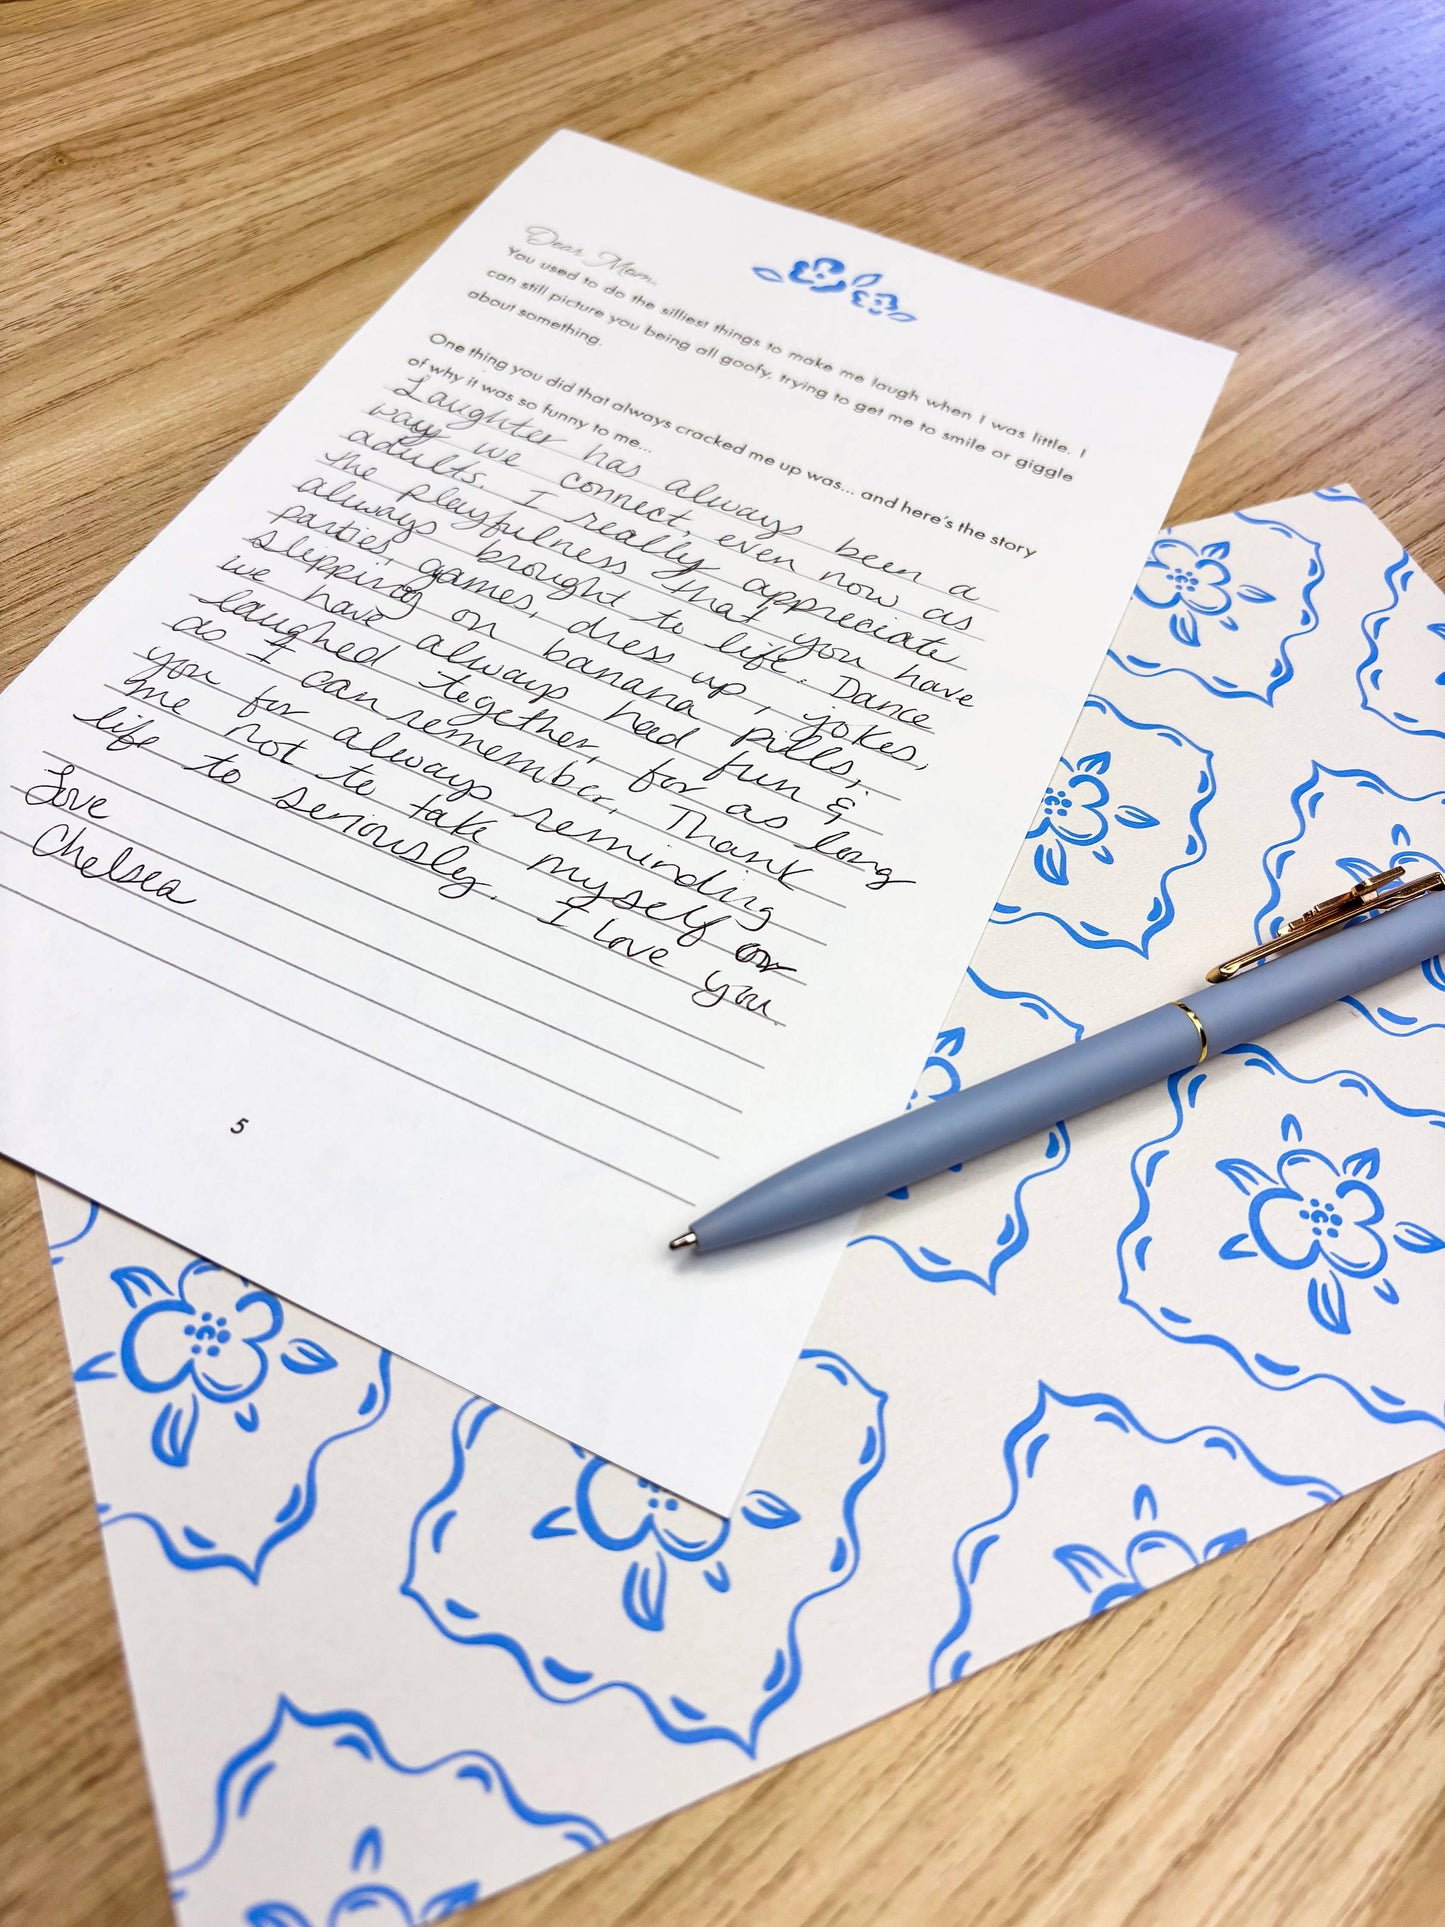 Dear Mom,
You used to do the silliest things to make me laugh when I was little. I
can still picture you being all goofy, trying to get me to smile or giggle
about something.
One thing you did that always cracked me up was... and here's the story
of why it was so funny to me...
Laughter has always been a
way we connect, even now as
adults. I really appreciate
the playfulness that you have
always brought to life. Dance
parties, games, dress up, jokes,
slipping on banana pills;
we have always had fun &
laughed together, for as long
as I can remember. Thank
you for always reminding
me not to take myself or
life to seriously. I love you.
Love
Chelsea
5